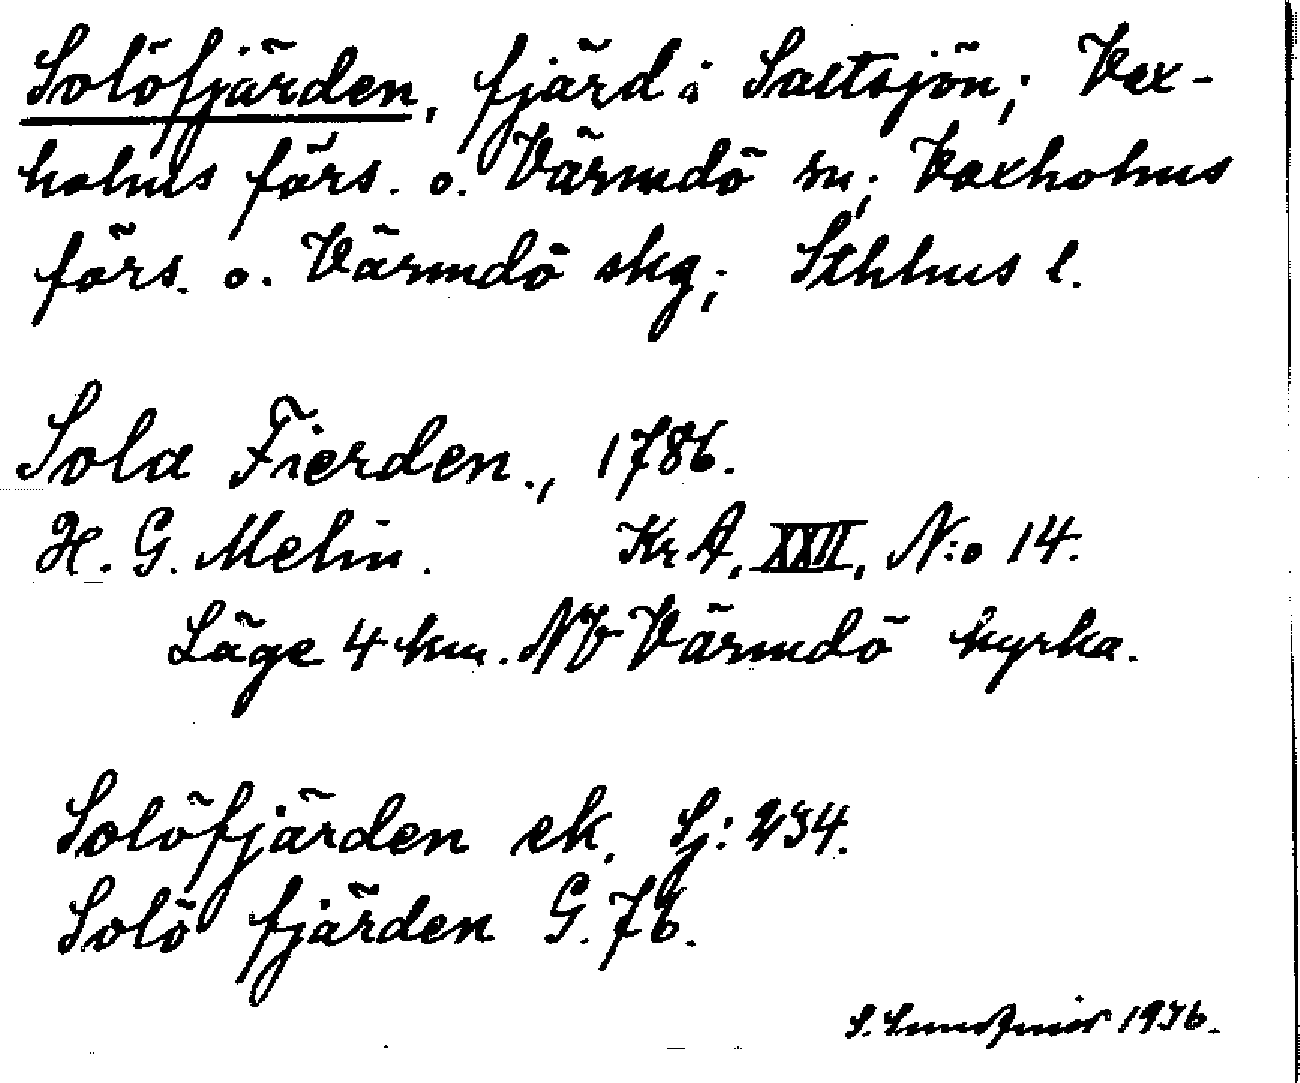 Solöfjärden, fjärd i Saltsjön; Vax-
holms förs. o. Värmdö sn; Vaxholms
förs. o. Värmdö skg; Sthlms l.
Sola Fierden., 1786.
H. G. Melin. Kr A, XXII, N:o 14.
Läge 4 km. NV Värmdö kyrka.
Solöfjärden ek. Sj: 234.
Solö fjärden G. 76.
S. 1936.